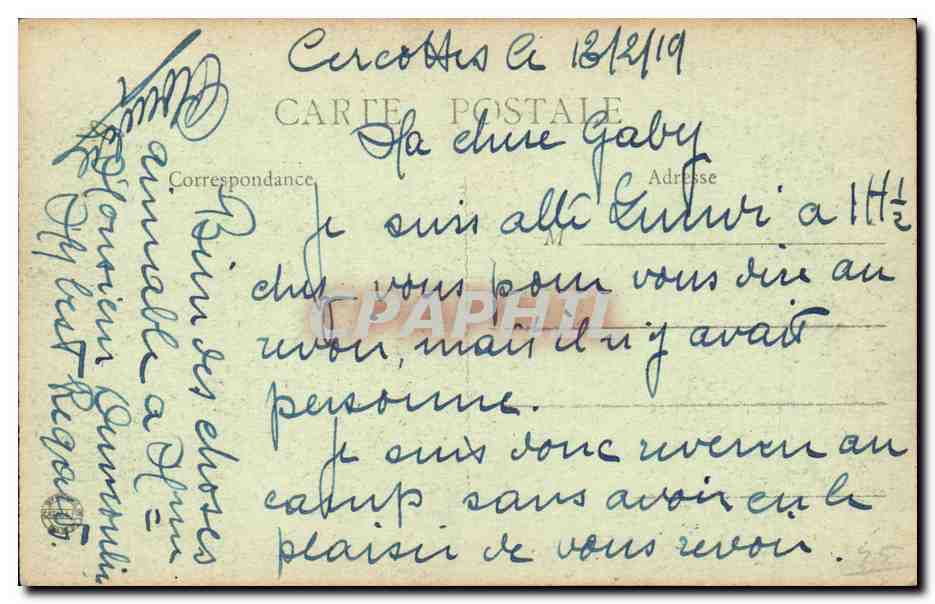 Cercottes le 13/2/19
CARTE POSTALE
Ma chere Gaby
Correspondance
Adresse
Je suis allé Lundi a 1H 1/2
M
chez vous pour vous dire au
CPAPHIL
revoir, mais il n'y avait
personne.
Je suis donc revenu au
camp sans avoir eu le
plaisir de vous revoir.
Bien des choses
aimable a Mme =
Monsieur Dumoulin
My best Regards.
45